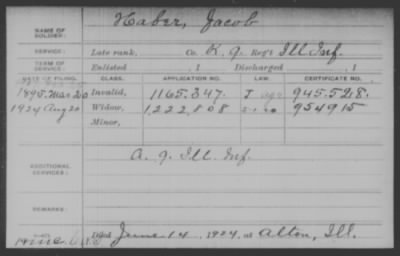 Haber, Jacob
NAME OF SOLDIER:
SERVICE: Late rank, Co. K. 9. Reg't Ill Inf.
TERM OF SERVICE: Enlisted , 1 Discharged , 1
DATE OF FILING. CLASS. APPLICATION NO. LAW. CERTIFICATE NO.
1895. Mar 20 Invalid, 1165.347. 945.528.
1924 Aug 20 Widow, 1,222,808 954915
Minor,
ADDITIONAL SERVICES: A. 9 Ill. Inf.
REMARKS:
Died June 14, 1924, at Alton, Ill.